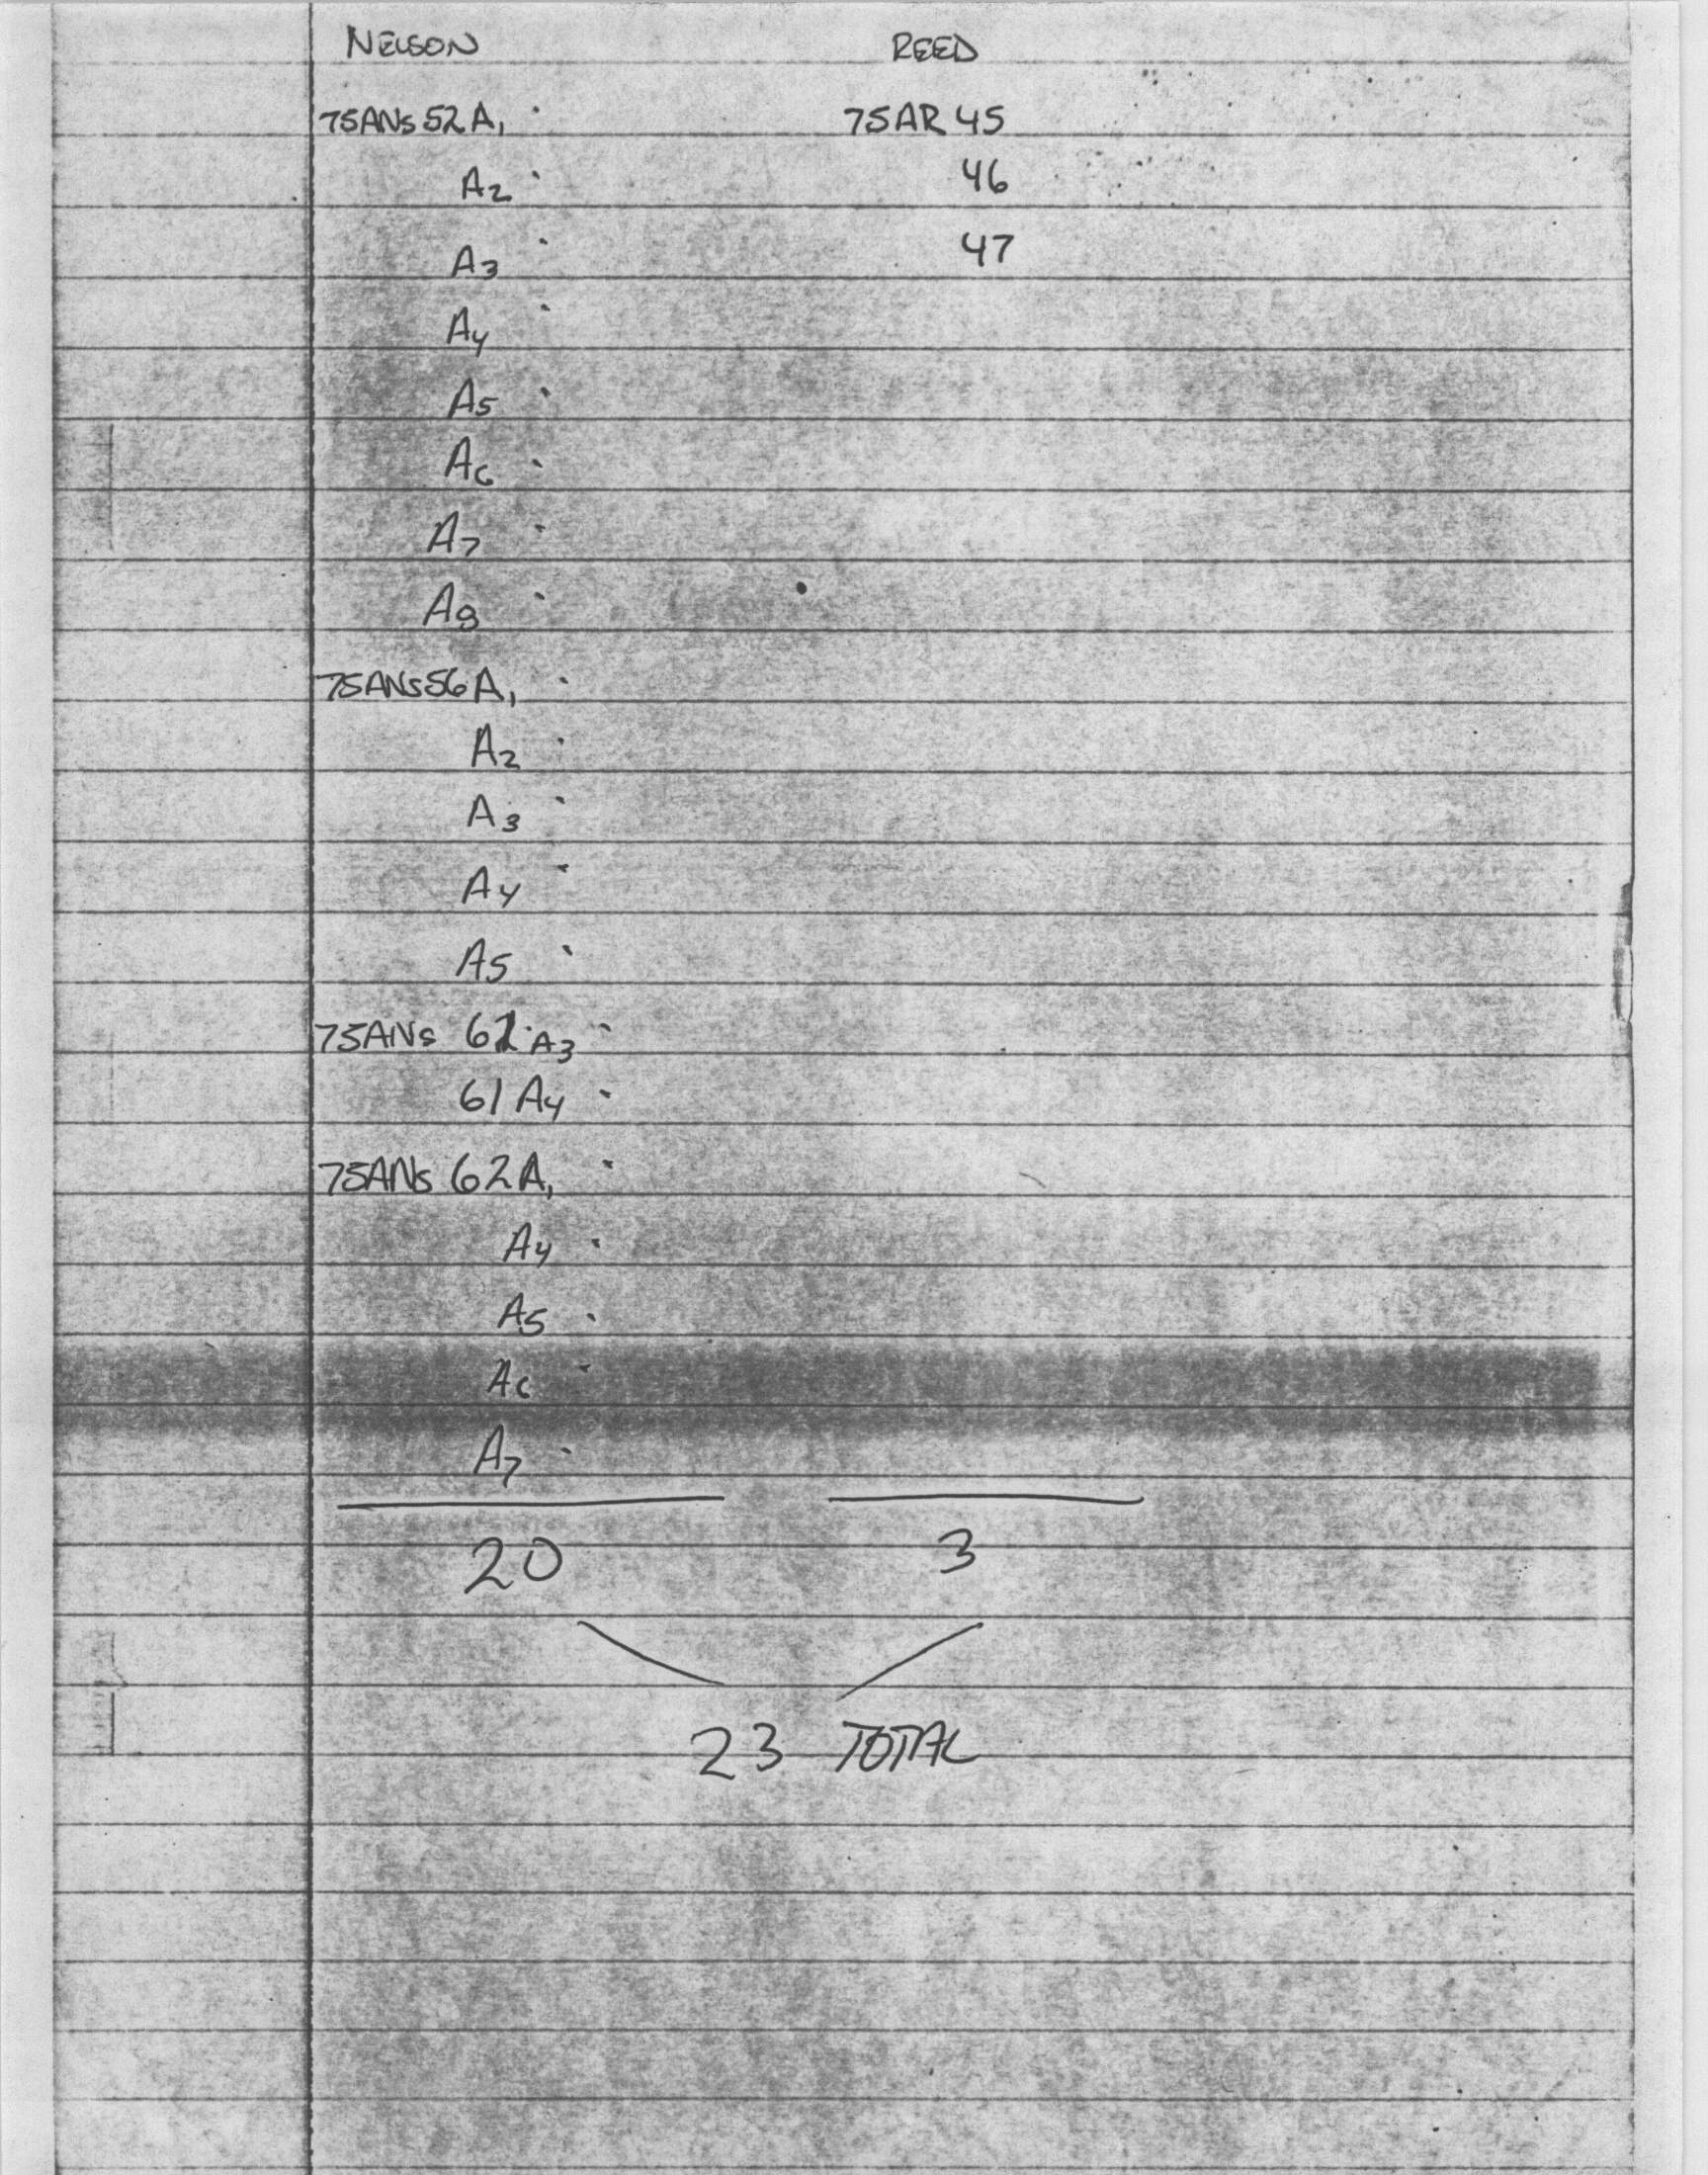 NELSON REED
75ANS 52A1 75AR 45
A2 46
A3 47
A4
A5
A6
A7
A8
75ANS56A1
A2
A3
A4
A5
75ANS A3
61 A4
75ANS 62A1
A4
A5
A6
A7
20 3
23 TOTAL